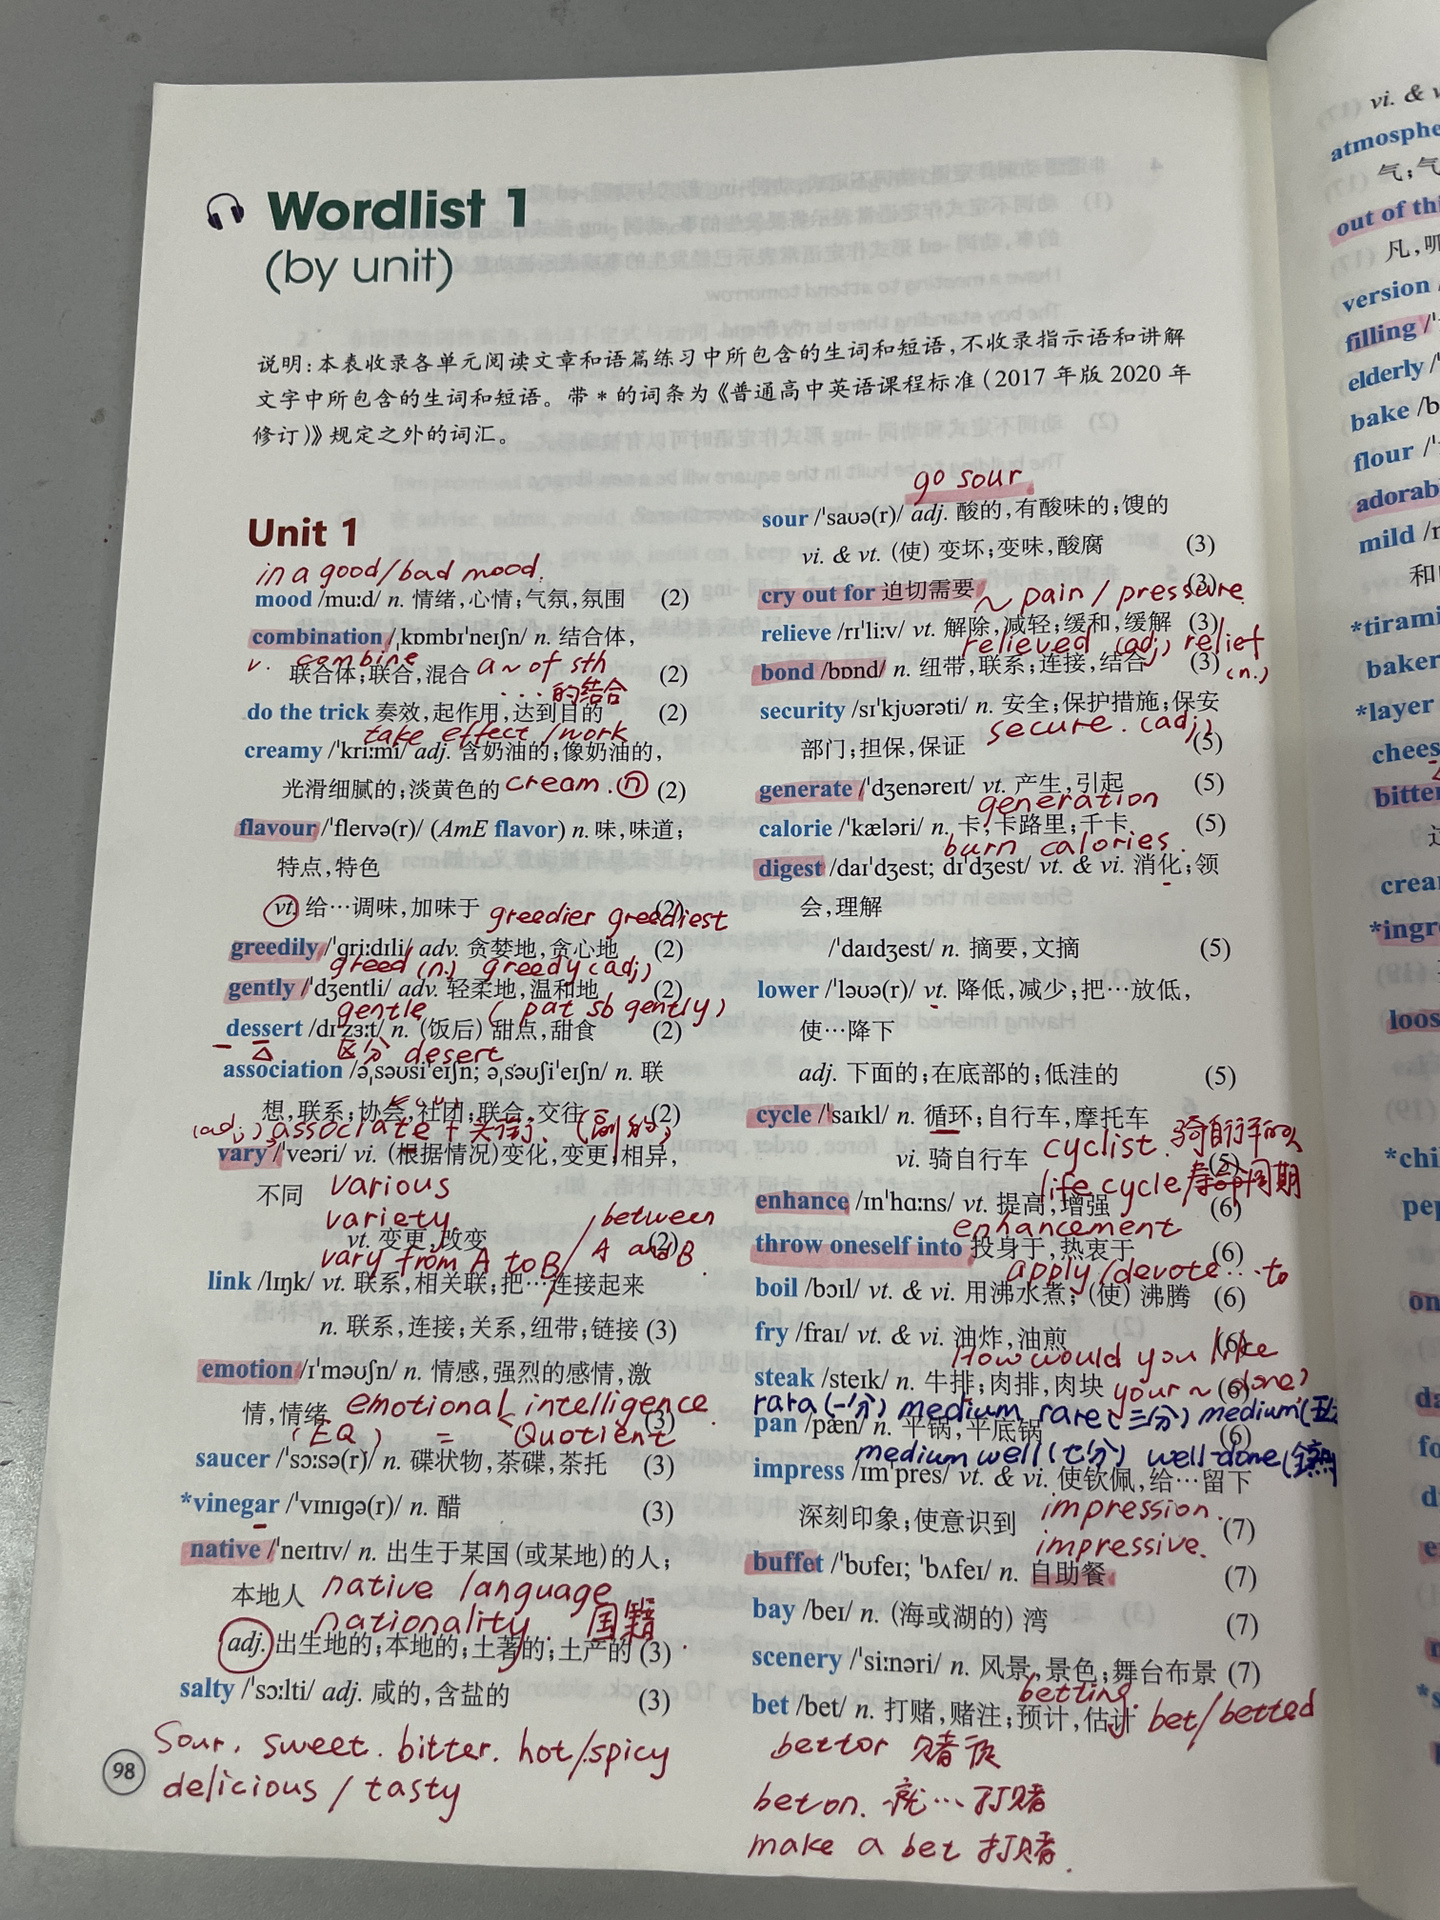 Wordlist 1
(by unit)
说明:本表收录各单元阅读文章和语篇练习中所包含的生词和短语,不收录指示语和讲解
文字中所包含的生词和短语。带 * 的词条为《普通高中英语课程标准(2017 年版 2020 年
修订)》规定之外的词汇。
Unit 1
in a good/bad mood.
mood /muːd/ n. 情绪,心情;气氛,氛围 (2)
combination /ˌkɒmbɪˈneɪʃn/ n. 结合体,
v. combine
联合体;联合,混合 a~ of sth (2)
...的结合
do the trick 奏效,起作用,达到目的 (2)
take effect / work
creamy /ˈkriːmi/ adj. 含奶油的;像奶油的,
光滑细腻的;淡黄色的 cream. n (2)
flavour /ˈfleɪvə(r)/ (AmE flavor) n. 味,味道;
特点,特色
vt. 给…调味,加味于 (2)
greedier greediest
greedily /ˈɡriːdɪli/ adv. 贪婪地,贪心地 (2)
greed (n.) greedy (adj)
gently /ˈdʒentli/ adv. 轻柔地,温和地 (2)
gentle (pat sb gently)
dessert /dɪˈzɜːt/ n. (饭后) 甜点,甜食 (2)
区分 desert
association /əˌsəʊsiˈeɪʃn; əˌsəʊʃiˈeɪʃn/ n. 联
想,联系;协会,社团;联合,交往 (2)
(adj) associate + 头衔. (副的)
vary /ˈveəri/ vi. (根据情况)变化,变更,相异,
不同 various
variety
vt. 变更,改变 (2)
vary from A to B / between A and B.
link /lɪŋk/ vt. 联系,相关联;把…连接起来
n. 联系,连接;关系,纽带;链接 (3)
emotion /ɪˈməʊʃn/ n. 情感,强烈的感情,激
情,情绪 (3)
emotional intelligence.
(EQ) = ~ Quotient
saucer /ˈsɔːsə(r)/ n. 碟状物,茶碟,茶托 (3)
*vinegar /ˈvɪnɪɡə(r)/ n. 醋 (3)
native /ˈneɪtɪv/ n. 出生于某国(或某地)的人;
本地人 native language
nationality. 国籍.
adj. 出生地的;本地的;土著的;土产的 (3)
salty /ˈsɔːlti/ adj. 咸的,含盐的 (3)
Sour. sweet. bitter. hot/spicy
delicious / tasty
98
go sour.
sour /ˈsaʊə(r)/ adj. 酸的,有酸味的;馊的
vi. & vt. (使) 变坏;变味,酸腐 (3)
cry out for 迫切需要 (3)
~ pain / pressure.
relieve /rɪˈliːv/ vt. 解除,减轻;缓和,缓解 (3)
relieved (adj) relief (n.)
bond /bɒnd/ n. 纽带,联系;连接,结合 (3)
security /sɪˈkjʊərəti/ n. 安全;保护措施;保安
部门;担保,保证 (5)
secure. (adj)
generate /ˈdʒenəreɪt/ vt. 产生,引起 (5)
generation
calorie /ˈkæləri/ n. 卡,卡路里;千卡 (5)
burn calories.
digest /daɪˈdʒest; dɪˈdʒest/ vt. & vi. 消化;领
会,理解
/ˈdaɪdʒest/ n. 摘要,文摘 (5)
lower /ˈləʊə(r)/ vt. 降低,减少;把…放低,
使…降下
adj. 下面的;在底部的;低洼的 (5)
cycle /ˈsaɪkl/ n. 循环;自行车,摩托车
cyclist. 骑自行车的人
vi. 骑自行车 (5)
life cycle/寿命周期
enhance /ɪnˈhɑːns/ vt. 提高,增强 (6)
enhancement
throw oneself into 投身于,热衷于 (6)
apply/devote...to
boil /bɔɪl/ vt. & vi. 用沸水煮; (使) 沸腾 (6)
fry /fraɪ/ vt. & vi. 油炸,油煎 (6)
How would you like
steak /steɪk/ n. 牛排;肉排,肉块 (6)
your ~ done?
rara (一分) medium rare (三分) medium (五
pan /pæn/ n. 平锅,平底锅 (6)
medium well (七分) well-done (全熟
impress /ɪmˈpres/ vt. & vi. 使钦佩,给…留下
深刻印象;使意识到 (7)
impression.
impressive.
buffet /ˈbʊfeɪ; ˈbʌfeɪ/ n. 自助餐 (7)
bay /beɪ/ n. (海或湖的) 湾 (7)
scenery /ˈsiːnəri/ n. 风景,景色;舞台布景 (7)
betting.
bet /bet/ n. 打赌,赌注;预计,估计 bet/betted
bettor 赌徒
bet on. 就…打赌
make a bet 打赌.
vi. &
atmosphe
气;气
out of thi
凡,
version
filling
elderly
bake
flour
adorab
mild
和
*tirami
baker
*layer
chees
bitte
crea
*ingr
loos
(19)
*chi
pep